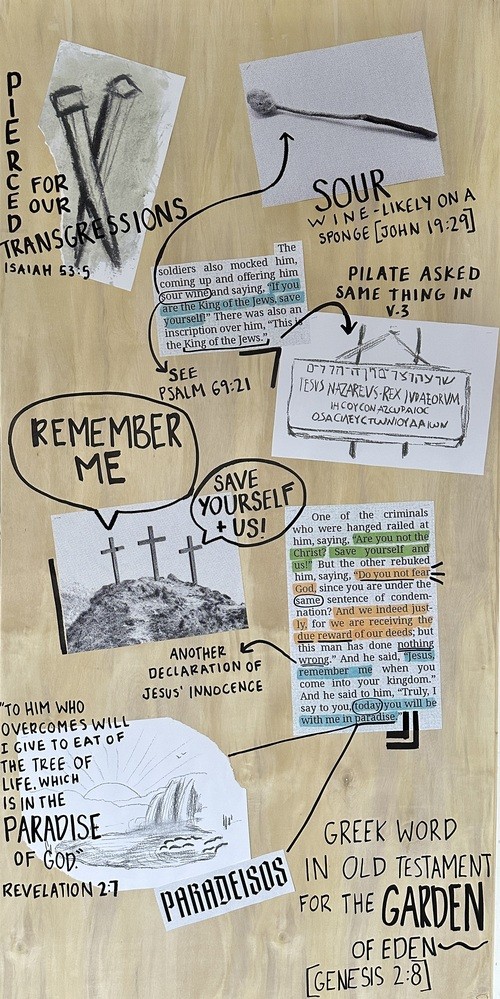 PIERCED
FOR
OUR
TRANSGRESSIONS
ISAIAH 53:5
SOUR
WINE-LIKELY ON A
SPONGE [JOHN 19:29]
The
soldiers also mocked him,
coming up and offering him
sour wine and saying, "If you
are the King of the Jews, save
yourself!" There was also an
inscription over him, "This is
the King of the Jews."
SEE
PSALM 69:21
PILATE ASKED
SAME THING IN
V.3
IESUS NAZAREVS·REX IVDAEORVM
REMEMBER
ME
SAVE
YOURSELF
+ US!
One of the criminals
who were hanged railed at
him, saying, "Are you not the
Christ? Save yourself and
us!" But the other rebuked
him, saying, "Do you not fear
God, since you are under the
same sentence of condem-
nation? And we indeed just-
ly, for we are receiving the
due reward of our deeds; but
this man has done nothing
wrong." And he said, "Jesus,
remember me when you
come into your kingdom."
And he said to him, "Truly, I
say to you, today you will be
with me in paradise."
ANOTHER
DECLARATION OF
JESUS' INNOCENCE
"TO HIM WHO
OVERCOMES WILL
I GIVE TO EAT OF
THE TREE OF
LIFE, WHICH
IS IN THE
PARADISE
OF GOD."
REVELATION 2:7
PARADEISOS
GREEK WORD
IN OLD TESTAMENT
FOR THE GARDEN
OF EDEN
[GENESIS 2:8]